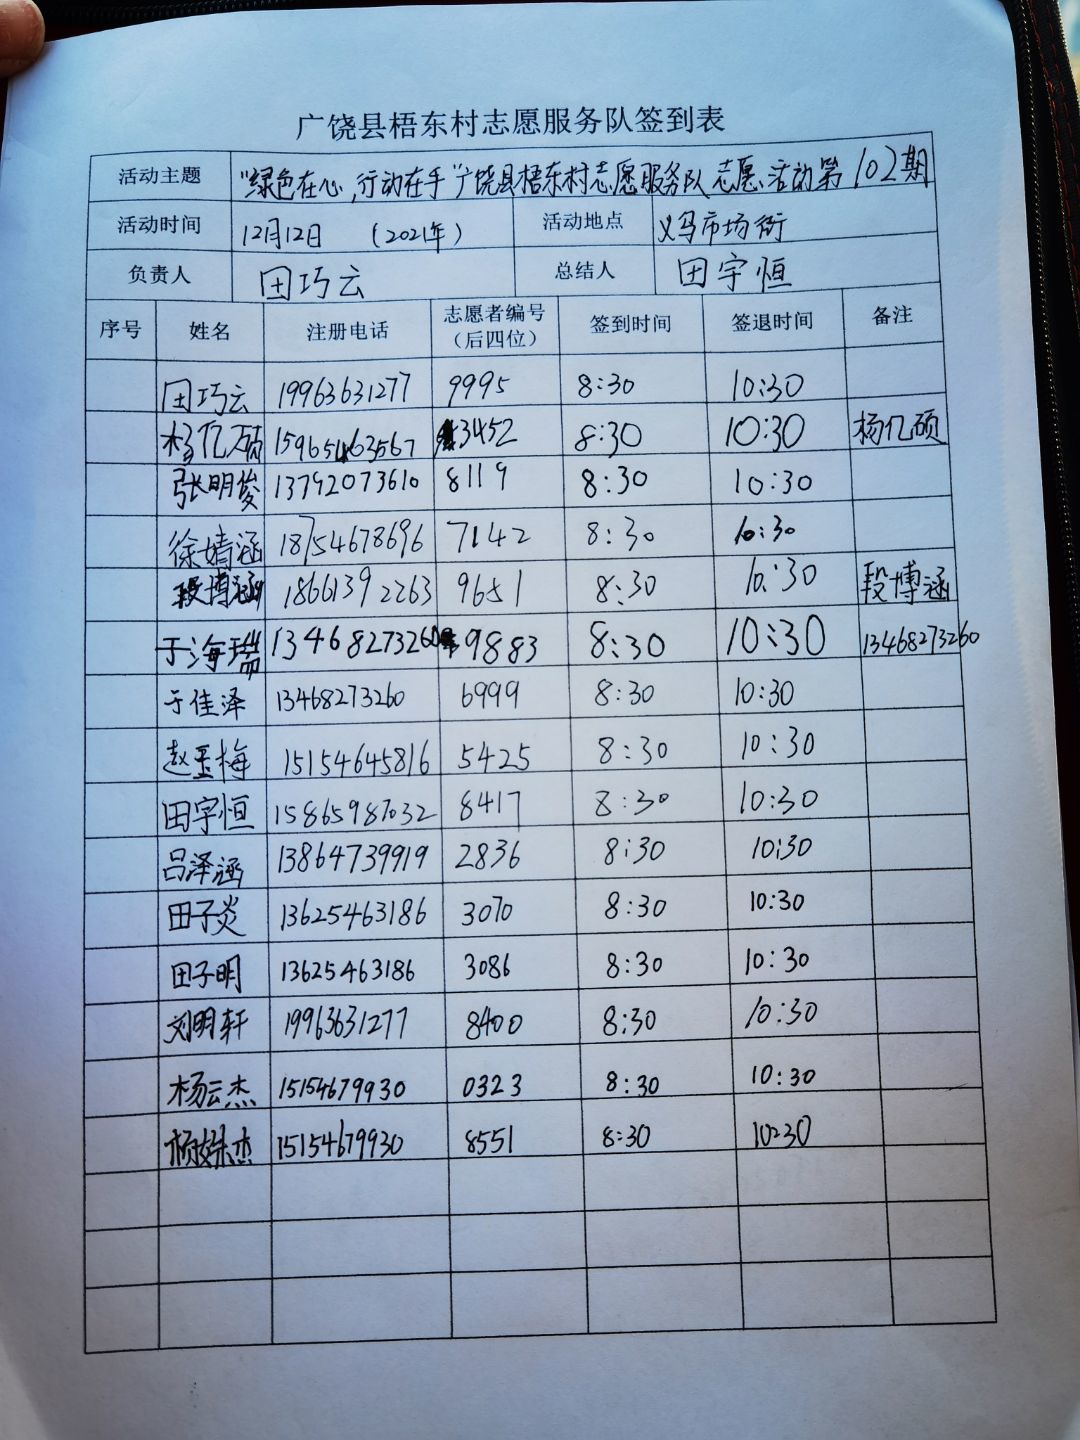 广饶县梧东村志愿服务队签到表
活动主题 "绿色在心,行动在手"广饶县梧东村志愿服务队志愿活动第102期
活动时间 12月12日 (2021年) 活动地点 义乌市场街
负责人 田巧云 总结人 田宇恒
序号 姓名 注册电话 志愿者编号(后四位) 签到时间 签退时间 备注
田巧云 19963631277 9995 8:30 10:30
杨亿硕 15965463567 3452 8:30 10:30 杨亿硕
张明俊 13792073610 8119 8:30 10:30
徐婧涵 18754678696 7142 8:30 10:30
段博涵 18661392263 9651 8:30 10:30 段博涵
于海瑞 13468273260 9883 8:30 10:30 13468273260
于佳泽 13468273260 6999 8:30 10:30
赵玉梅 15154645816 5425 8:30 10:30
田宇恒 15865987032 8417 8:30 10:30
吕泽涵 13864739919 2836 8:30 10:30
田子炎 13625463186 3070 8:30 10:30
田子明 13625463186 3086 8:30 10:30
刘明轩 19963631277 8400 8:30 10:30
杨云杰 15154679930 0323 8:30 10:30
杨姝杰 15154679930 8551 8:30 10:30